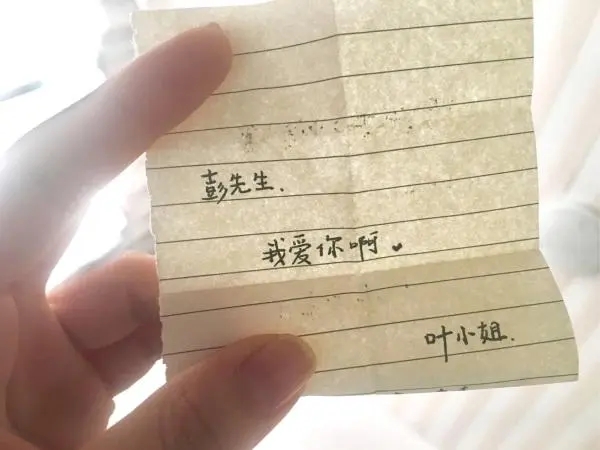 彭先生.
我爱你啊♥
叶小姐.